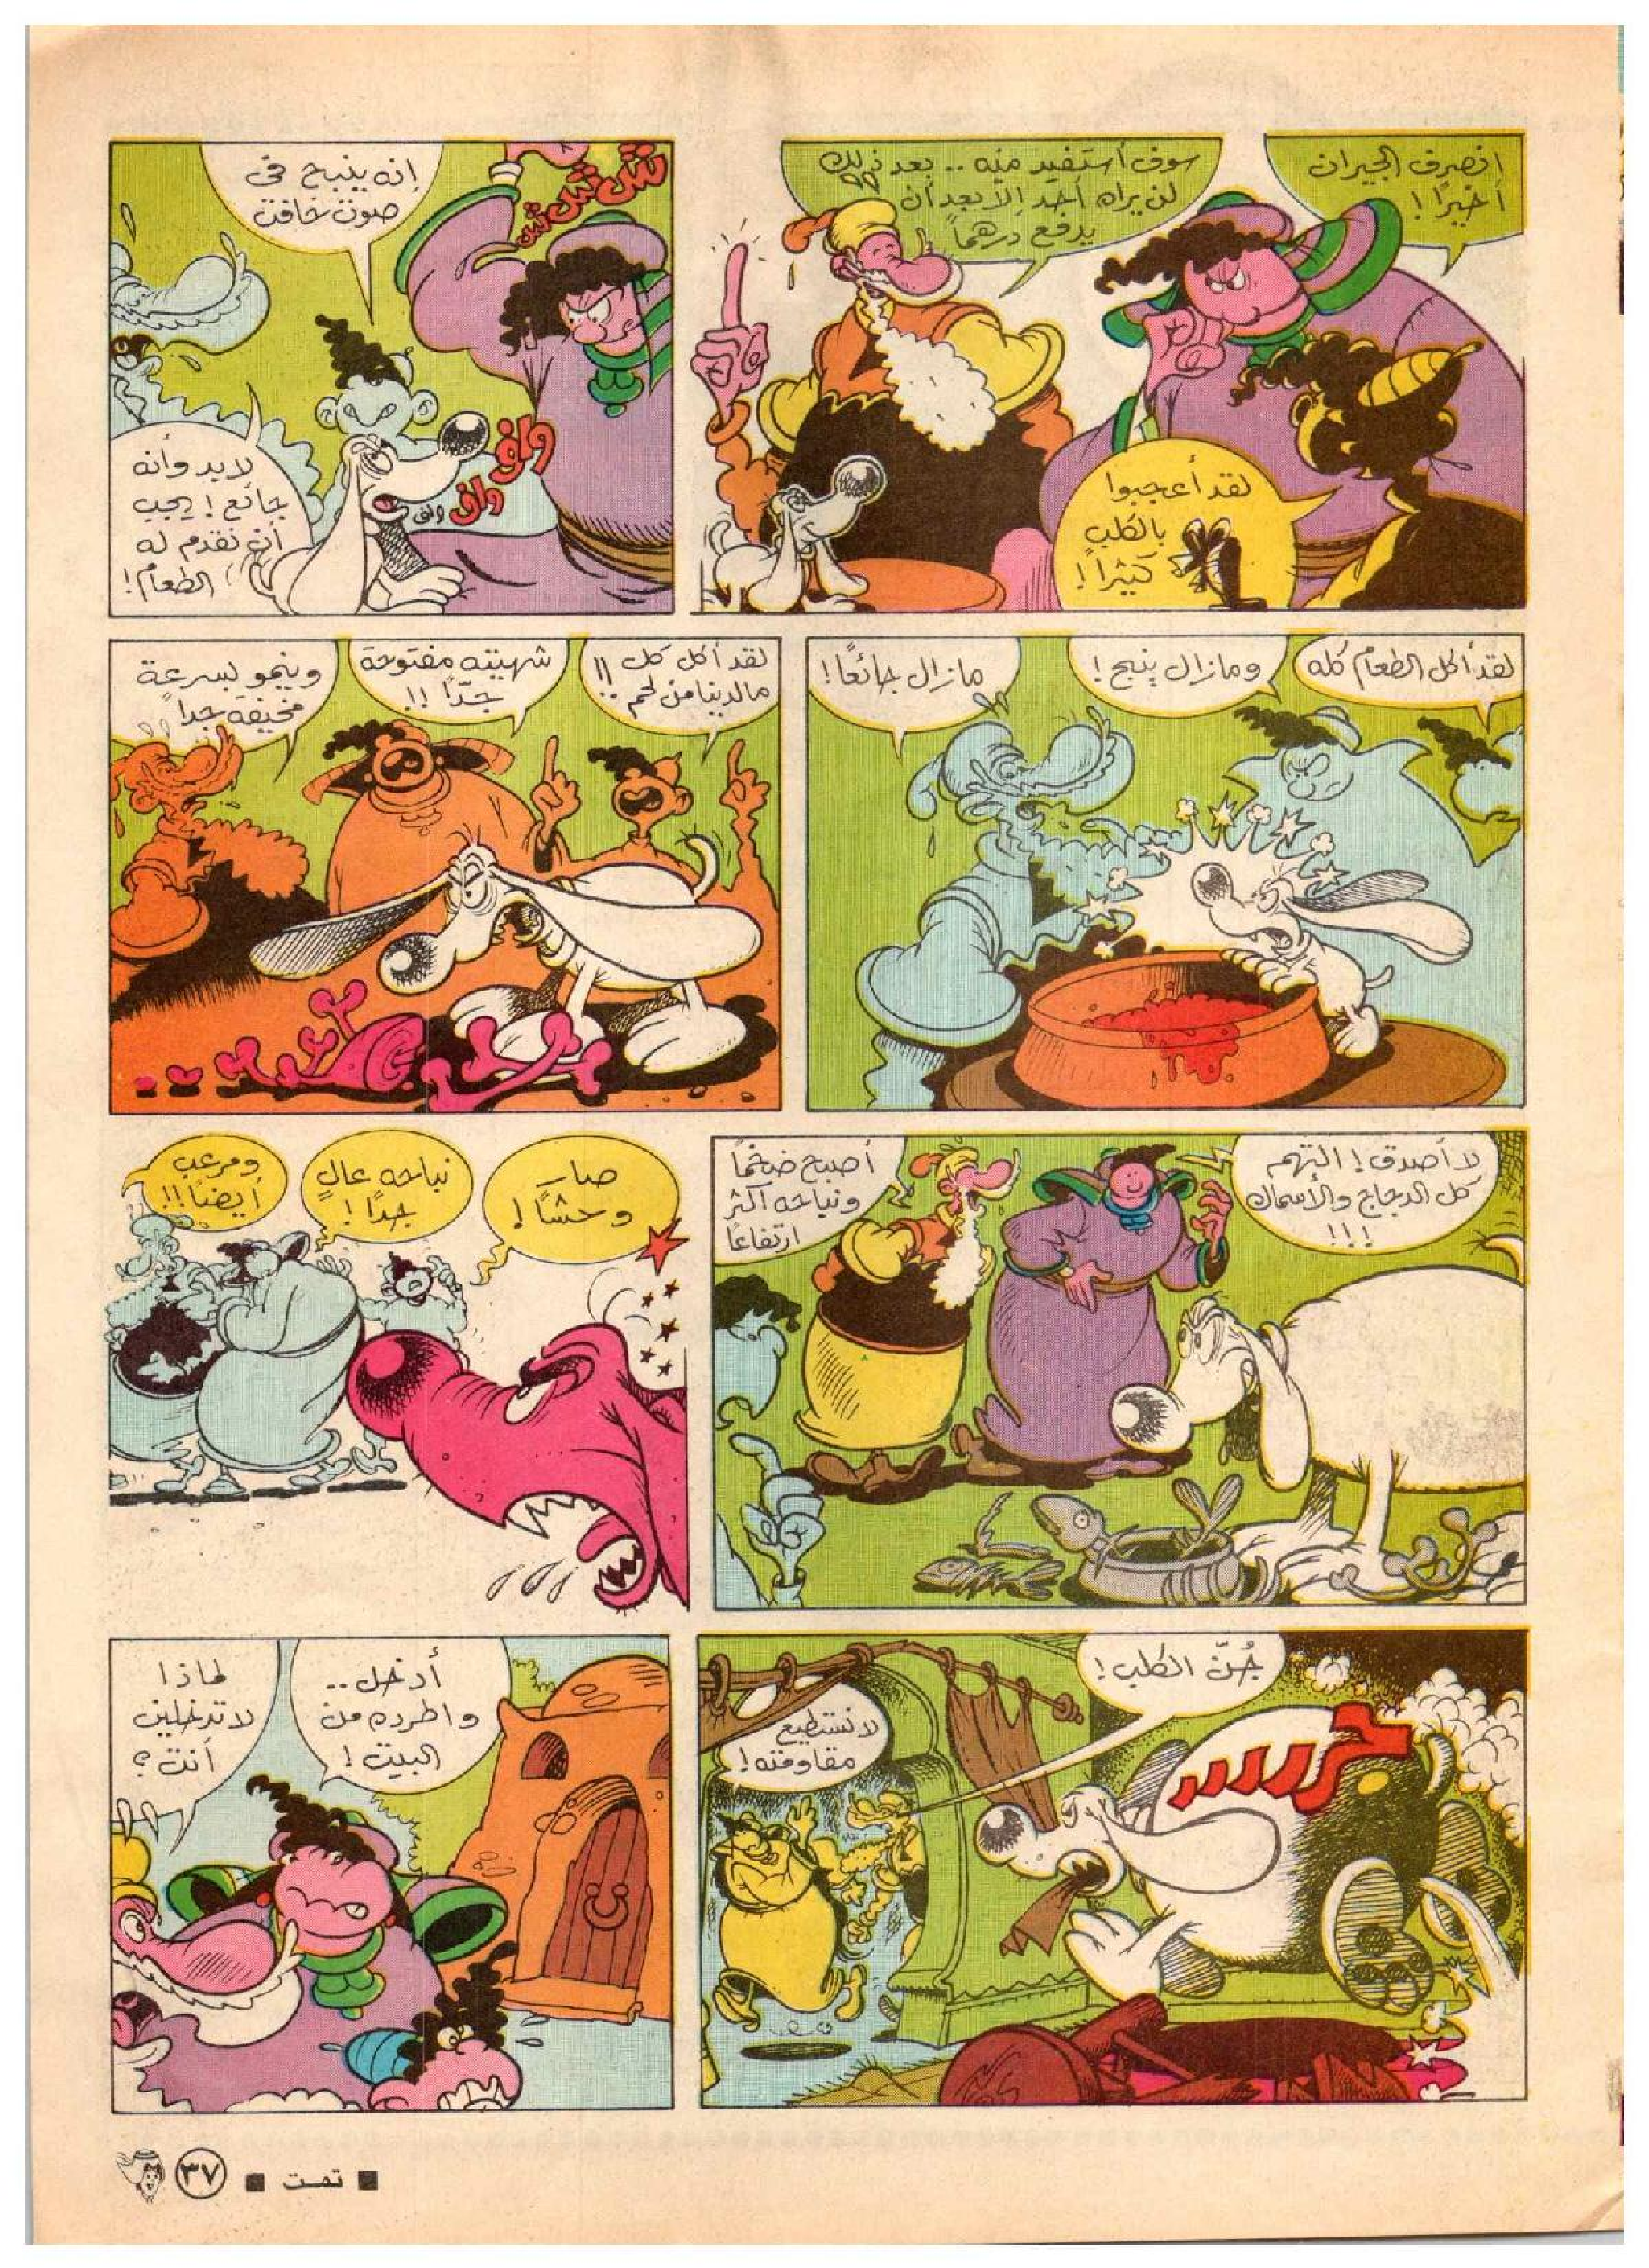 انصرف الجيران
أخيرًا!
سوف أستفيد منه .. بعد ذلك
لن يراه أحد إلا بعد أن
يدفع درهمًا
لقد أعجبوا
بالكلب
كثيرًا!
إنه ينبح في
صوت خافت
واف
واف
واف
لابد وأنه
جائع! يجب
أن نقدم له
الطعام!
لقد أكل الطعام كله
ومازال ينبح!
مازال جائعًا!
لقد أكل كل
مالدينا من لحم!!
شهيته مفتوحة
جدًا!!
وينمو بسرعة
مخيفة جدا
لا أصدق! التهم
كل الدجاج والأسماك
!!!
أصبح ضخمًا
ونباحه أكثر
ارتفاعًا
صار
وحشًا!
نباحه عالٍ
جدًا!
ومرعب
أيضًا!!
جُنّ الكلب!
لا نستطيع
مقاومته!
أدخل ..
واطرده من
البيت!
لماذا
لا تدخلين
أنت؟
■ تمت ■ ٣٧